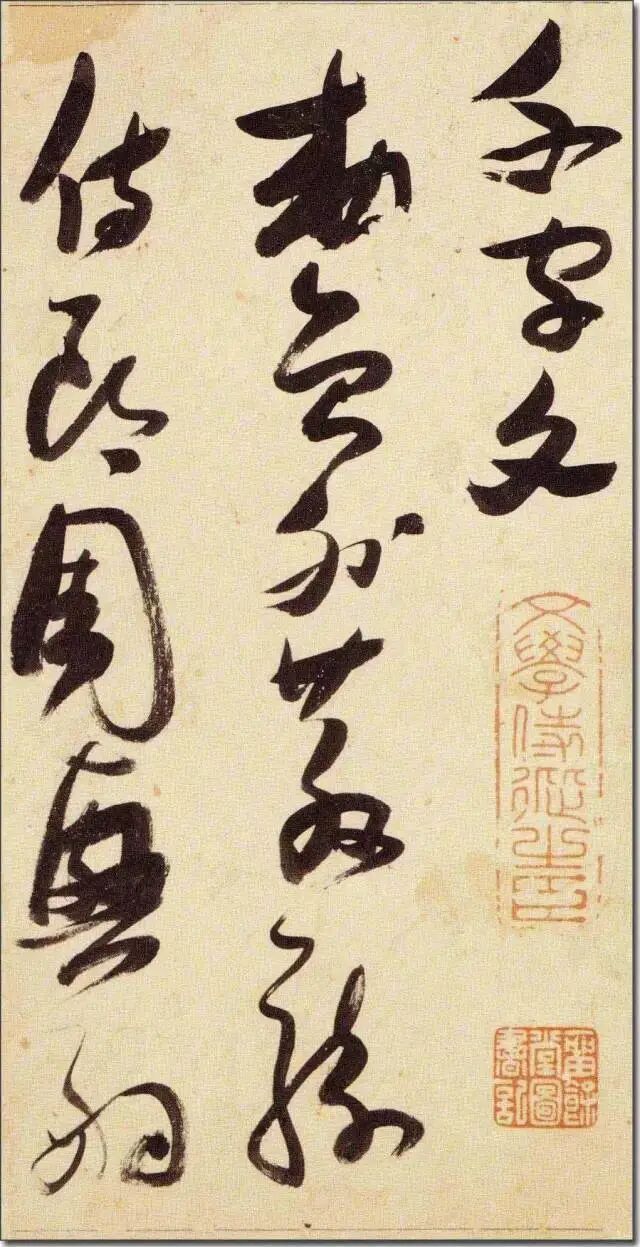 千字文
敕員外散騎
侍郎周興嗣
文學侍從之臣